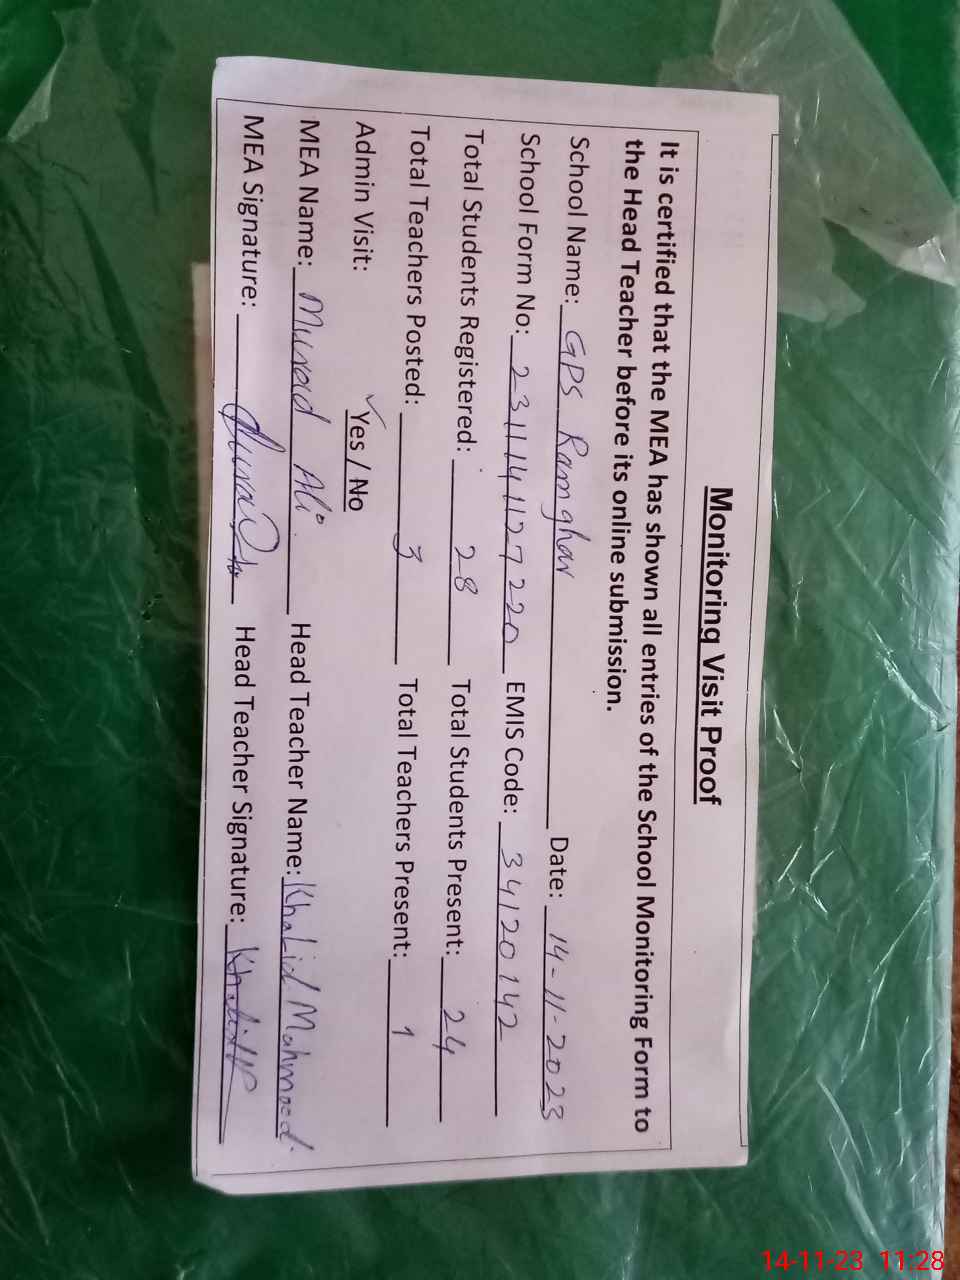 Monitoring Visit Proof
It is certified that the MEA has shown all entries of the School Monitoring Form to
the Head Teacher before its online submission.
School Name: GPS Ramghar Date: 14-11-2023
School Form No: 2311141127220 EMIS Code: 34120142
Total Students Registered: 28 Total Students Present: 24
Total Teachers Posted: 3 Total Teachers Present: 1
Admin Visit: ✓Yes / No
MEA Name: Murad Ali Head Teacher Name: Khalid Mahmood.
MEA Signature: Head Teacher Signature: Khalid
14-11-23 11:28